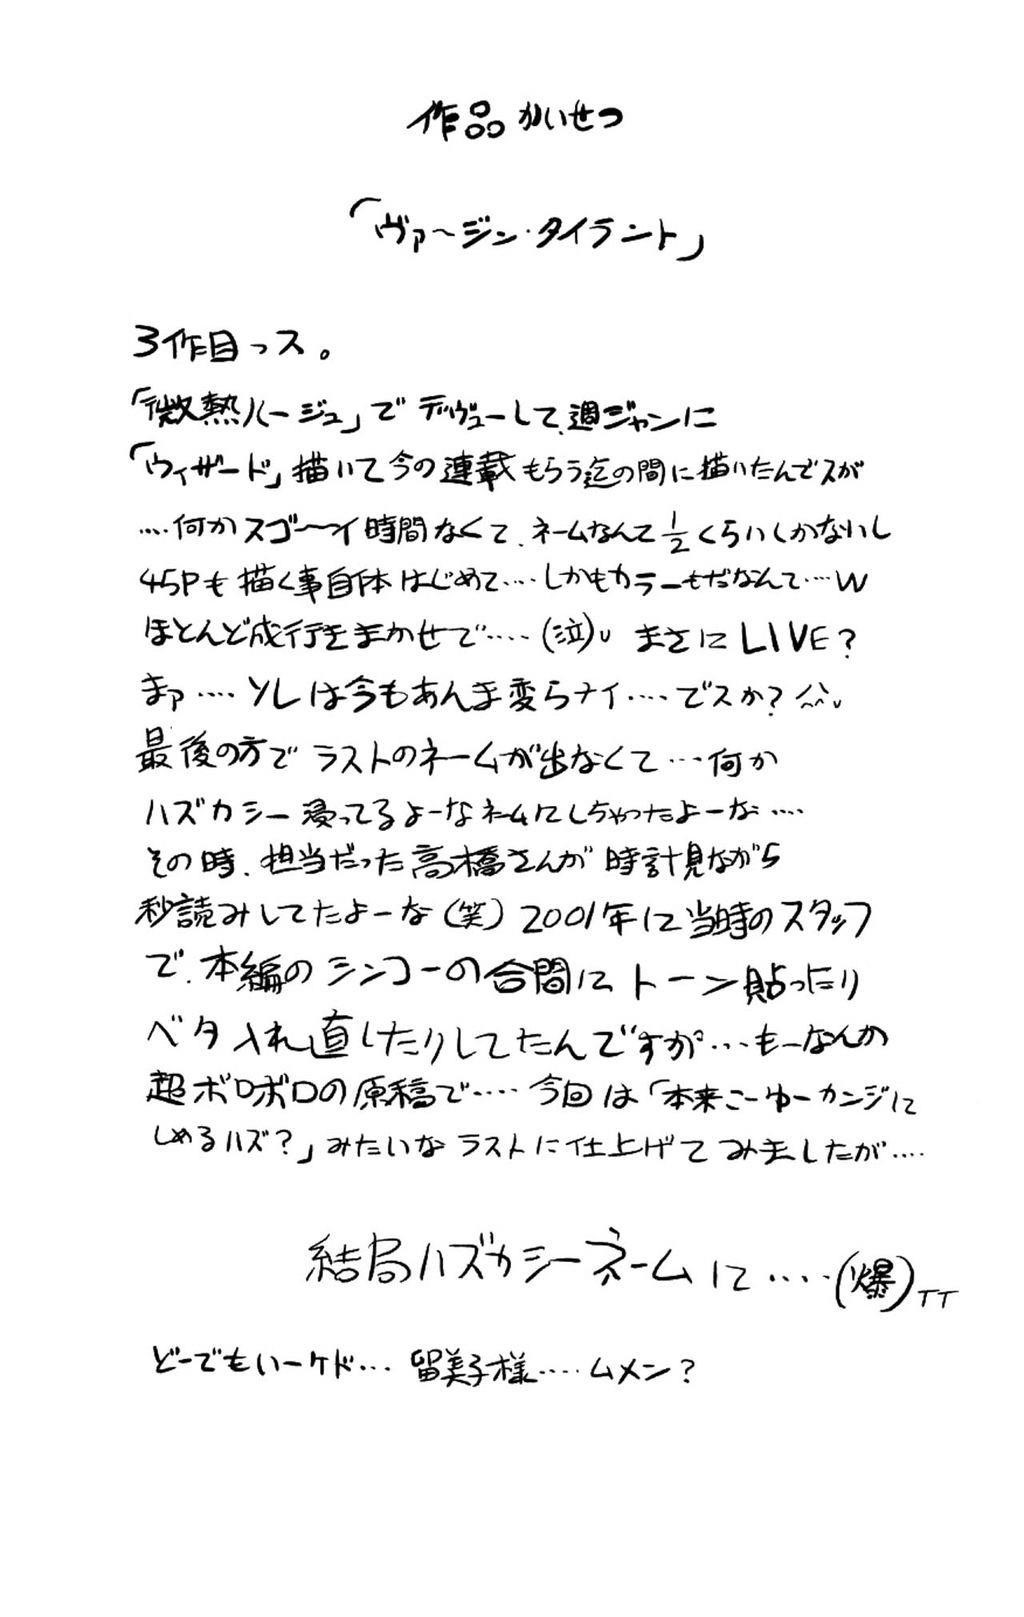 作品かいせつ
「ヴァ〜ジン・タイラント」
3作目っス。
「微熱ルージュ」でデヴューして、週ジャンに
「ウィザード」描いて今の連載もらう迄の間に描いたんでスが
‥‥何かスゴ〜イ時間なくて、ネームなんて1/2くらいしかないし
45Pも描く事自体はじめて‥‥しかもカラーもだなんて‥‥w
ほとんど成行きまかせで‥‥‥(泣)υ まさにLIVE?
まァ‥‥ソレは今もあんま変らナイ‥‥でスか?^^;
最後の方でラストのネームが出なくて‥‥何か
ハズカシー浸ってるよーなネームにしちゃったよーな‥‥
その時、担当だった高橋さんが時計見ながら
秒読みしてたよーな(笑)2001年に当時のスタッフ
で、本編のシンコーの合間にトーン貼ったり
ベタ入れ直したりしてたんですが‥‥もーなんか
超ボロボロの原稿で‥‥今回は「本来こーゆーカンジに
しめるハズ?」みたいなラストに仕上げてみましたが‥‥
結局ハズカシーネームに‥‥(爆)TT
どーでもいーケド‥‥留美子様‥‥ムメン?